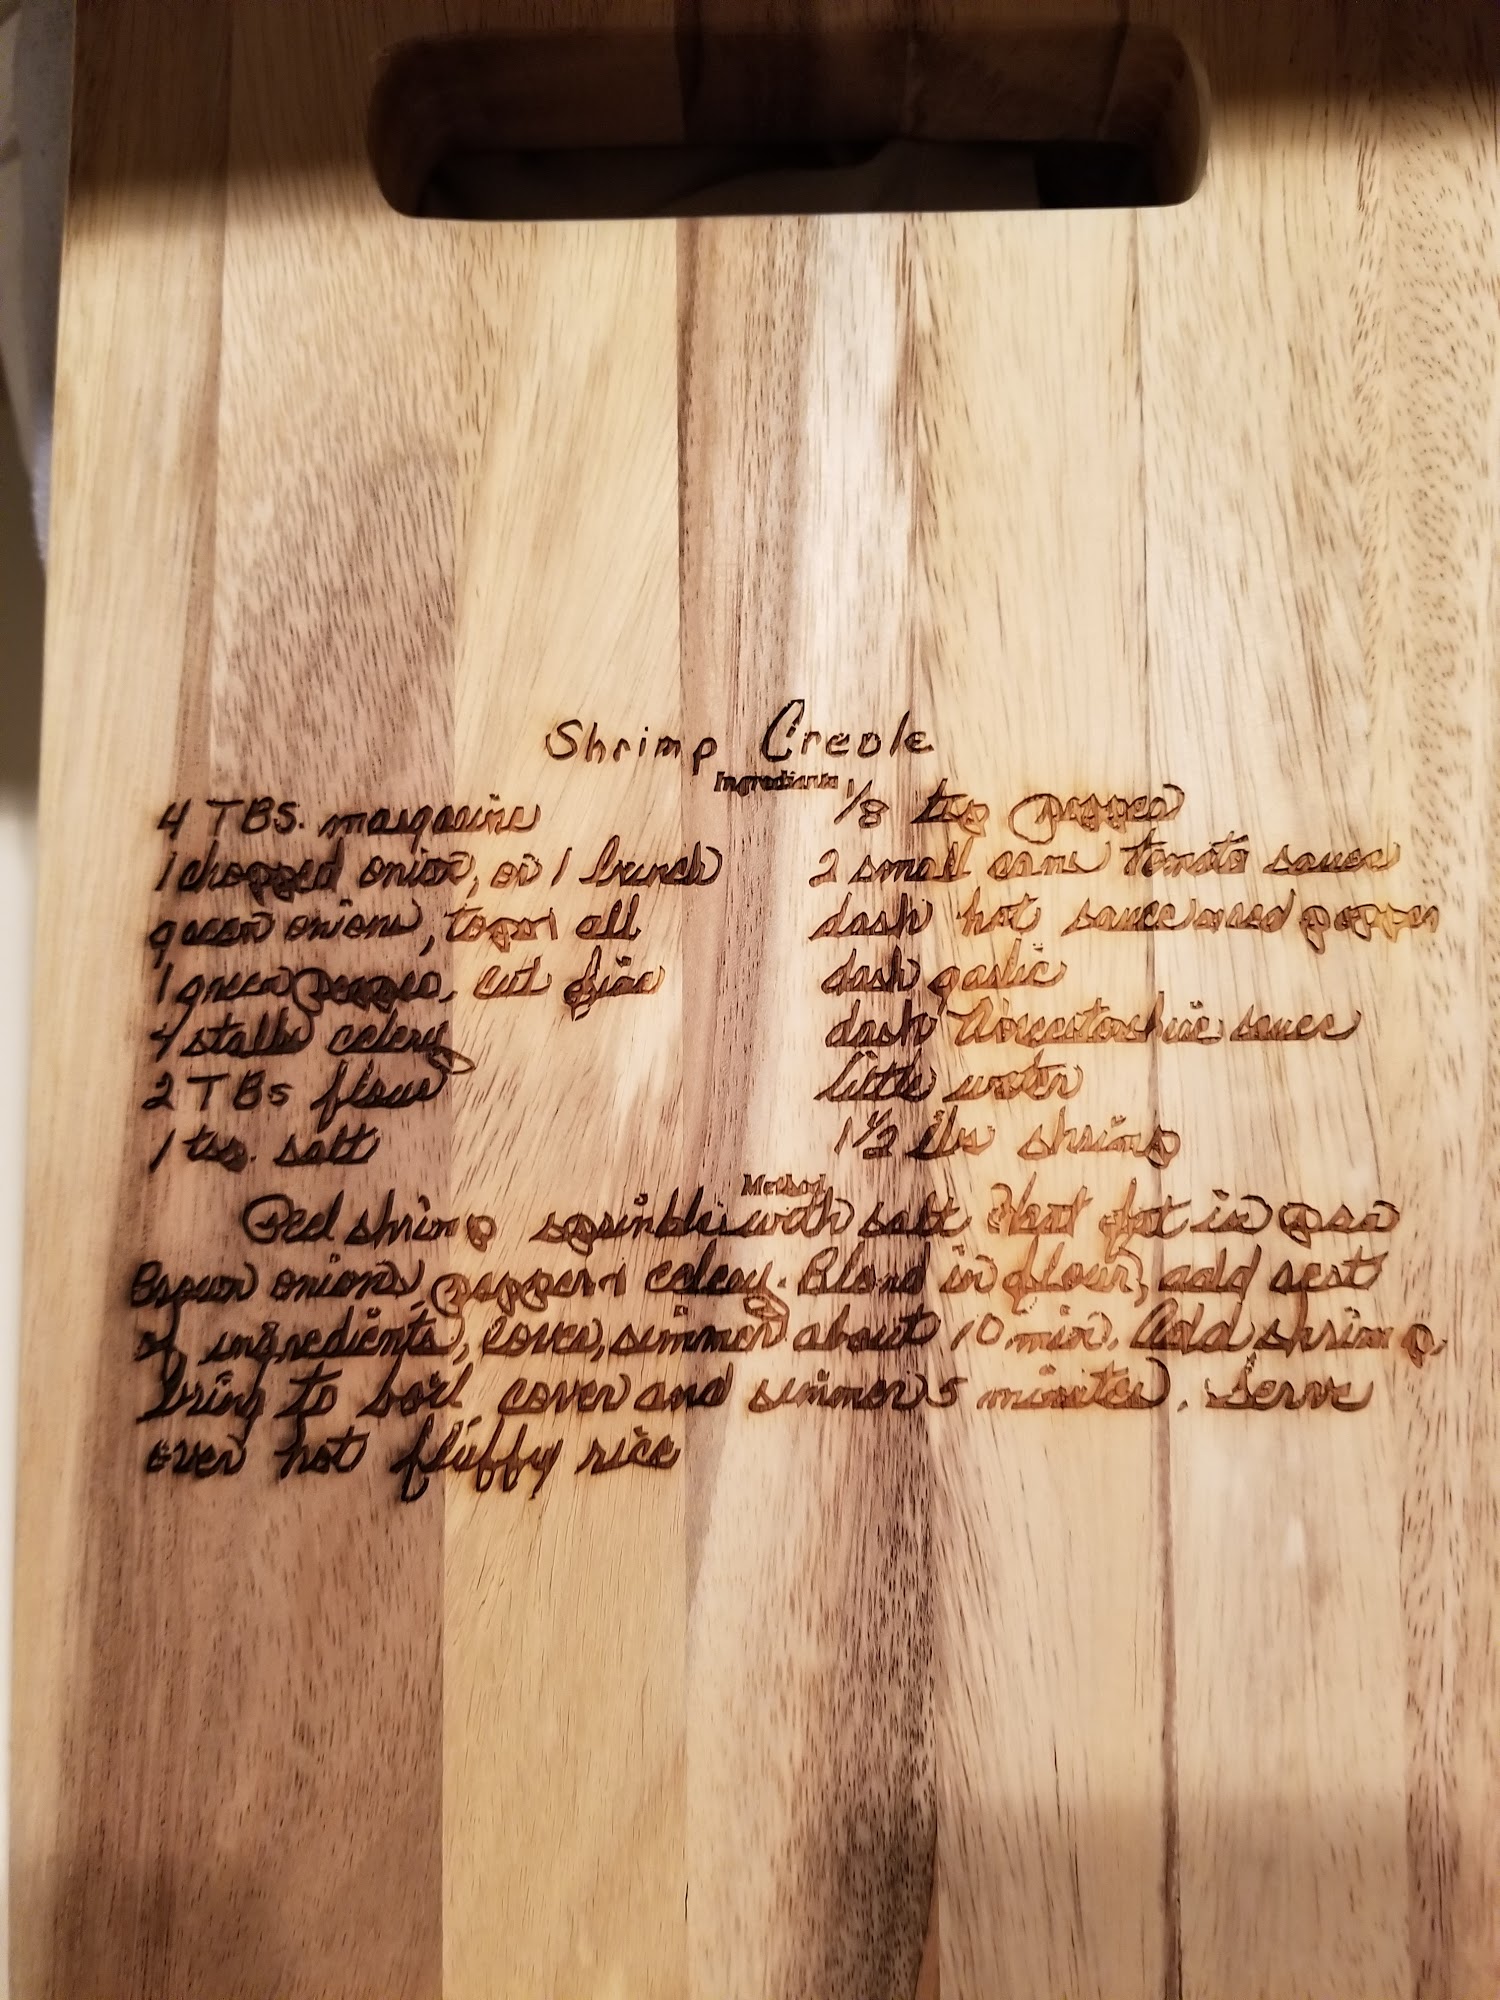 Shrimp Creole
Ingredients
4 TBS. margarine
1 chopped onion, or 1 bunch
green onions, tops + all
1 green pepper, cut fine
4 stalks celery
2 TBS flour
1 tsp. salt
1/8 tsp pepper
2 small cans tomato sauce
dash hot sauce red pepper
dash garlic
dash Worcestorshire sauce
little water
1 1/2 lbs shrimp
Method
Peel shrimp sprinkle with salt. Heat fat in pan
Brown onions, pepper + celery. Blend in flour, add rest
of ingredients, cover, simmer about 10 min. Add shrimp,
bring to boil cover and simmer 5 minutes. Serve
over hot fluffy rice